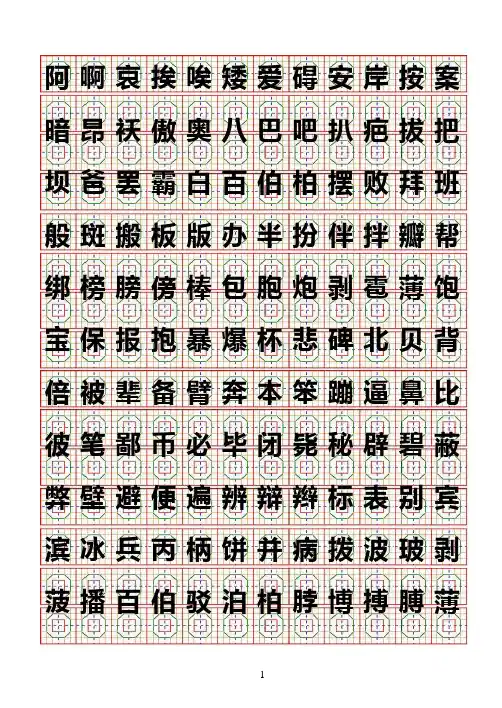 阿啊哀挨唉矮爱碍安岸按案
暗昂袄傲奥八巴吧扒疤拔把
坝爸罢霸白百伯柏摆败拜班
般斑搬板版办半扮伴拌瓣帮
绑榜膀傍棒包胞炮剥雹薄饱
宝保报抱暴爆杯悲碑北贝背
倍被辈备臂奔本笨蹦逼鼻比
彼笔鄙币必毕闭毙秘辟碧蔽
弊壁避便遍辨辩辫标表别宾
滨冰兵丙柄饼并病拨波玻剥
菠播百伯驳泊柏脖博搏膊薄
1